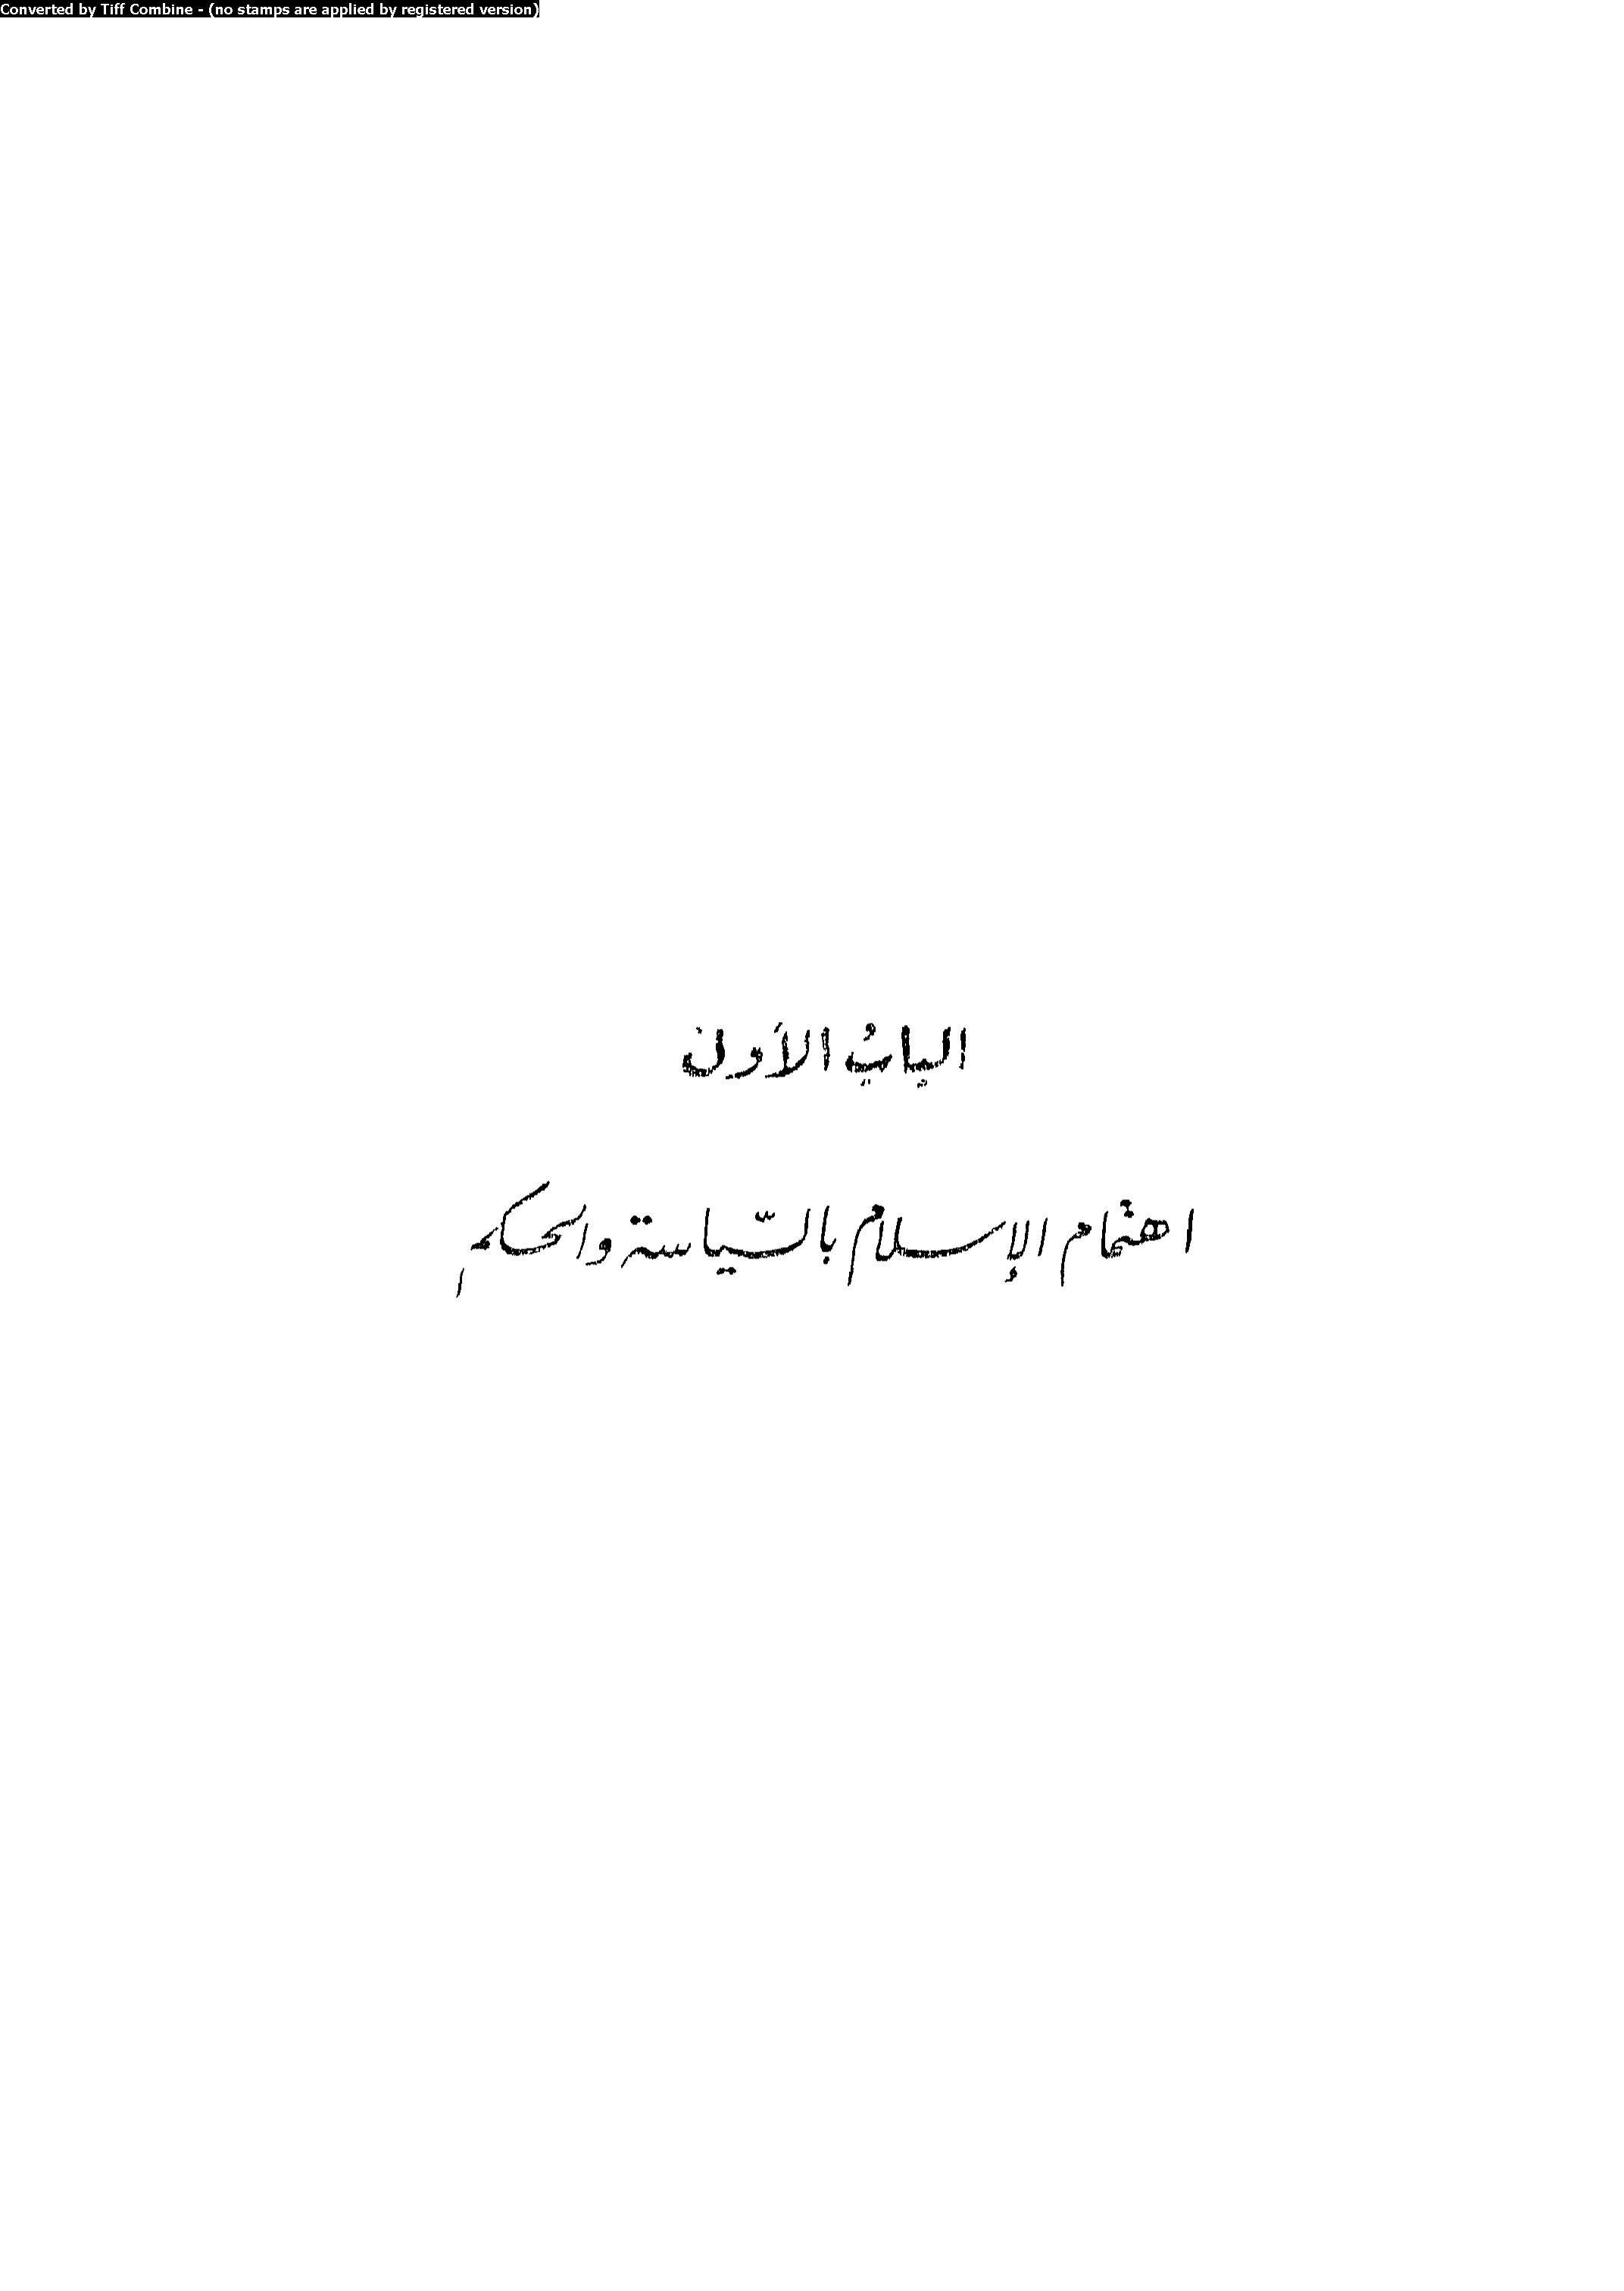 Converted by Tiff Combine - (no stamps are applied by registered version)
البابُ الأول
اهتمام الإسلام بالسّياسة والحكم